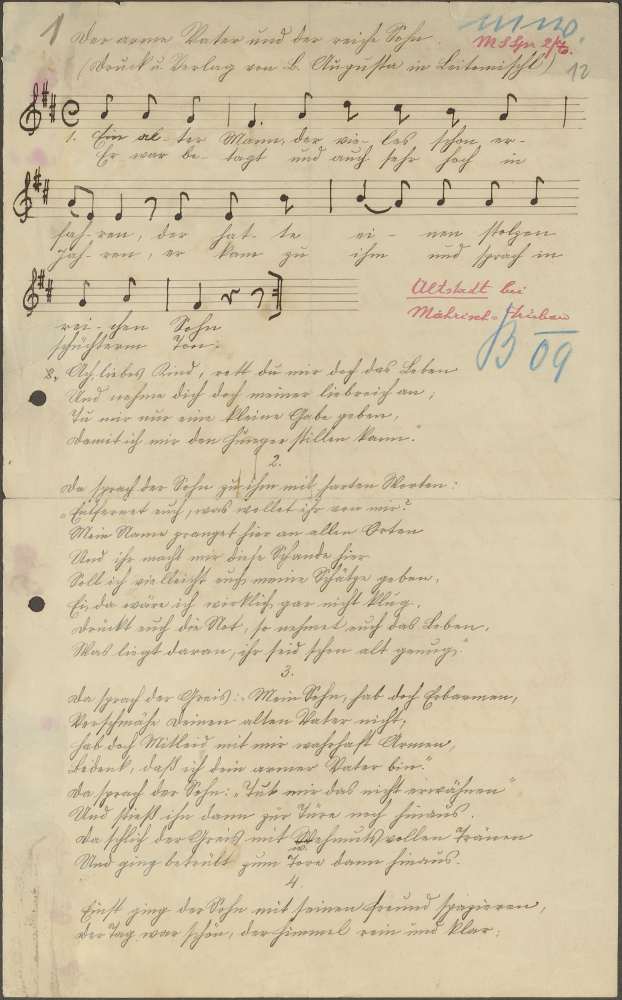 1 Der arme Vater und der reiche Sohn.
(Druck u. Verlag von B. Augusta in Leitomischl)
12
1. Ein al- ter Mann, der vie- les schon er-
Er war be- tagt und auch sehr hoch in
fah- ren, der hat- te ei- nen stolzen
Jah- ren, er kam zu ihm und sprach in
rei- chen Sohn
schüchterm Ton:
Altstadt bei
Mährisch-Trübau
B 09
Ach liebes Kind, rett du mir doch das Leben
Und nehme dich doch meiner liebreich an,
Tu mir nur eine kleine Gabe geben,
Damit ich mir den Hunger stillen kann."
2.
Da sprach der Sohn zu ihm mit harten Worten:
"Entfernet euch, was wollet ihr von mir?
Mein Name pranget hier an allen Orten
Und ihr macht mir diese Schande hier
Soll ich vielleicht euch meine Schätze geben,
Ei, da wäre ich wirklich gar nicht klug.
Drückt euch die Not, so nehmet euch das Leben,
Was liegt daran, ihr seid schon alt genug."
3.
Da sprach der Greis: "Mein Sohn, hab doch Erbarmen,
Verschmähe deinen alten Vater nicht,
Hab doch Mitleid mit mir wahrhaft Armen,
Bedenk, daß ich dein armer Vater bin."
Da sprach der Sohn: "Tut mir das nicht erwähnen"
Und stieß ihn dann zur Türe noch hinaus.
Da schlich der Greis mit Wehmutsvollen Tränen
Und ging betrübt zum Tore dann hinaus.
4.
Einst ging der Sohn mit seinen Freund spazieren,
Der Tag war schön, der Himmel rein und klar;